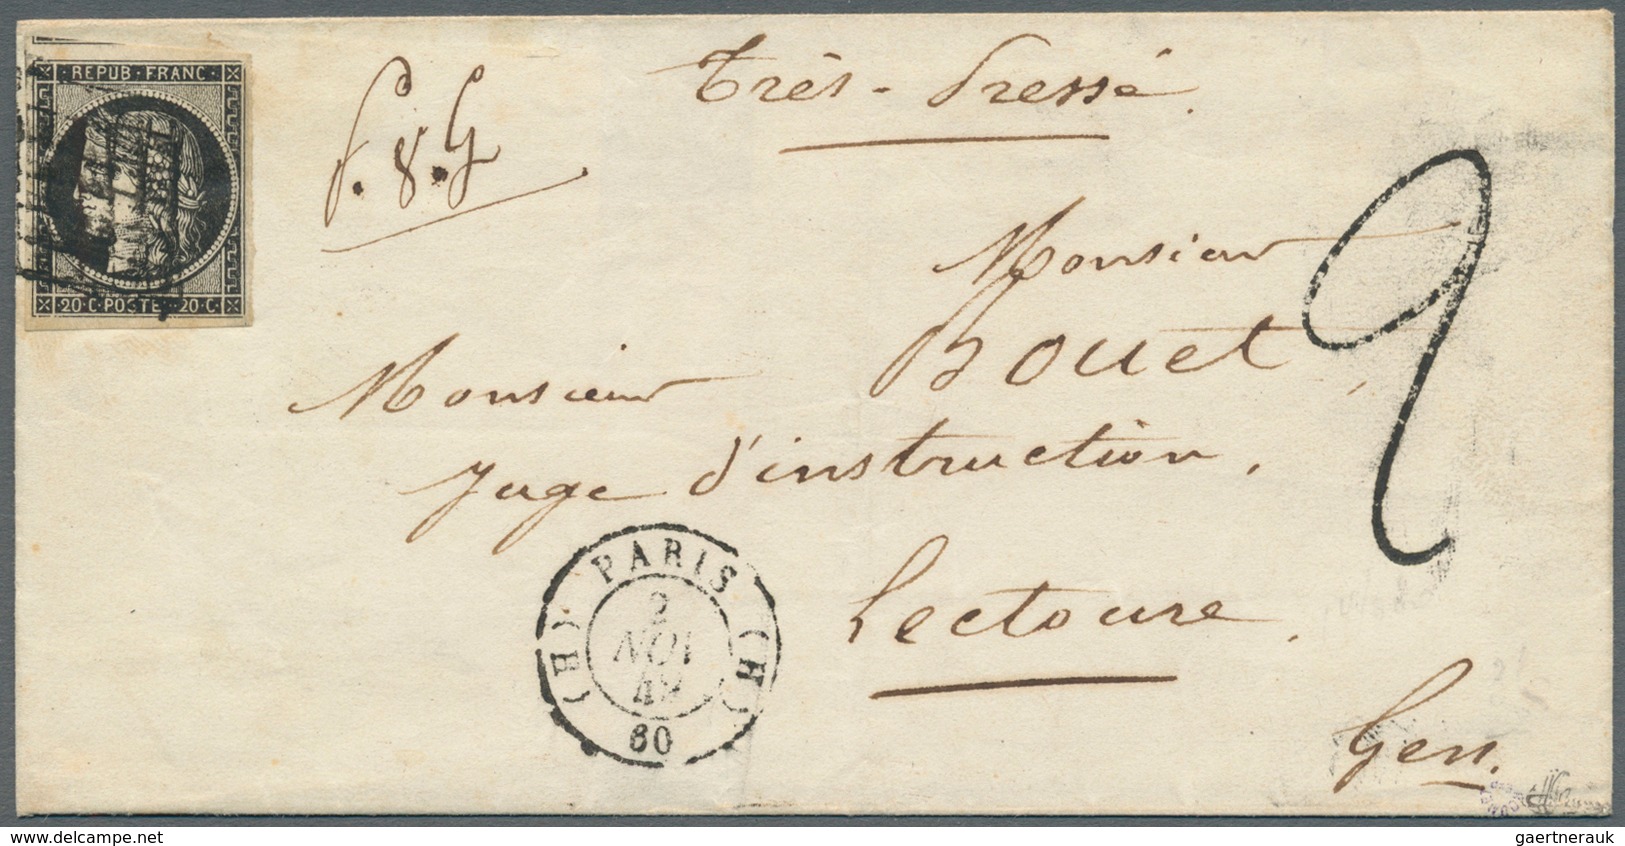 REPUB·FRANC·
20·C·POSTE·20·C·
Très-Pressé.
Monsieur
Monsieur Bouet,
Juge d'instruction,
Lectoure,
Gers.
PARIS
(H) (H)
2
NOV
49
60
2
gaertnerauk @ delcampe.net